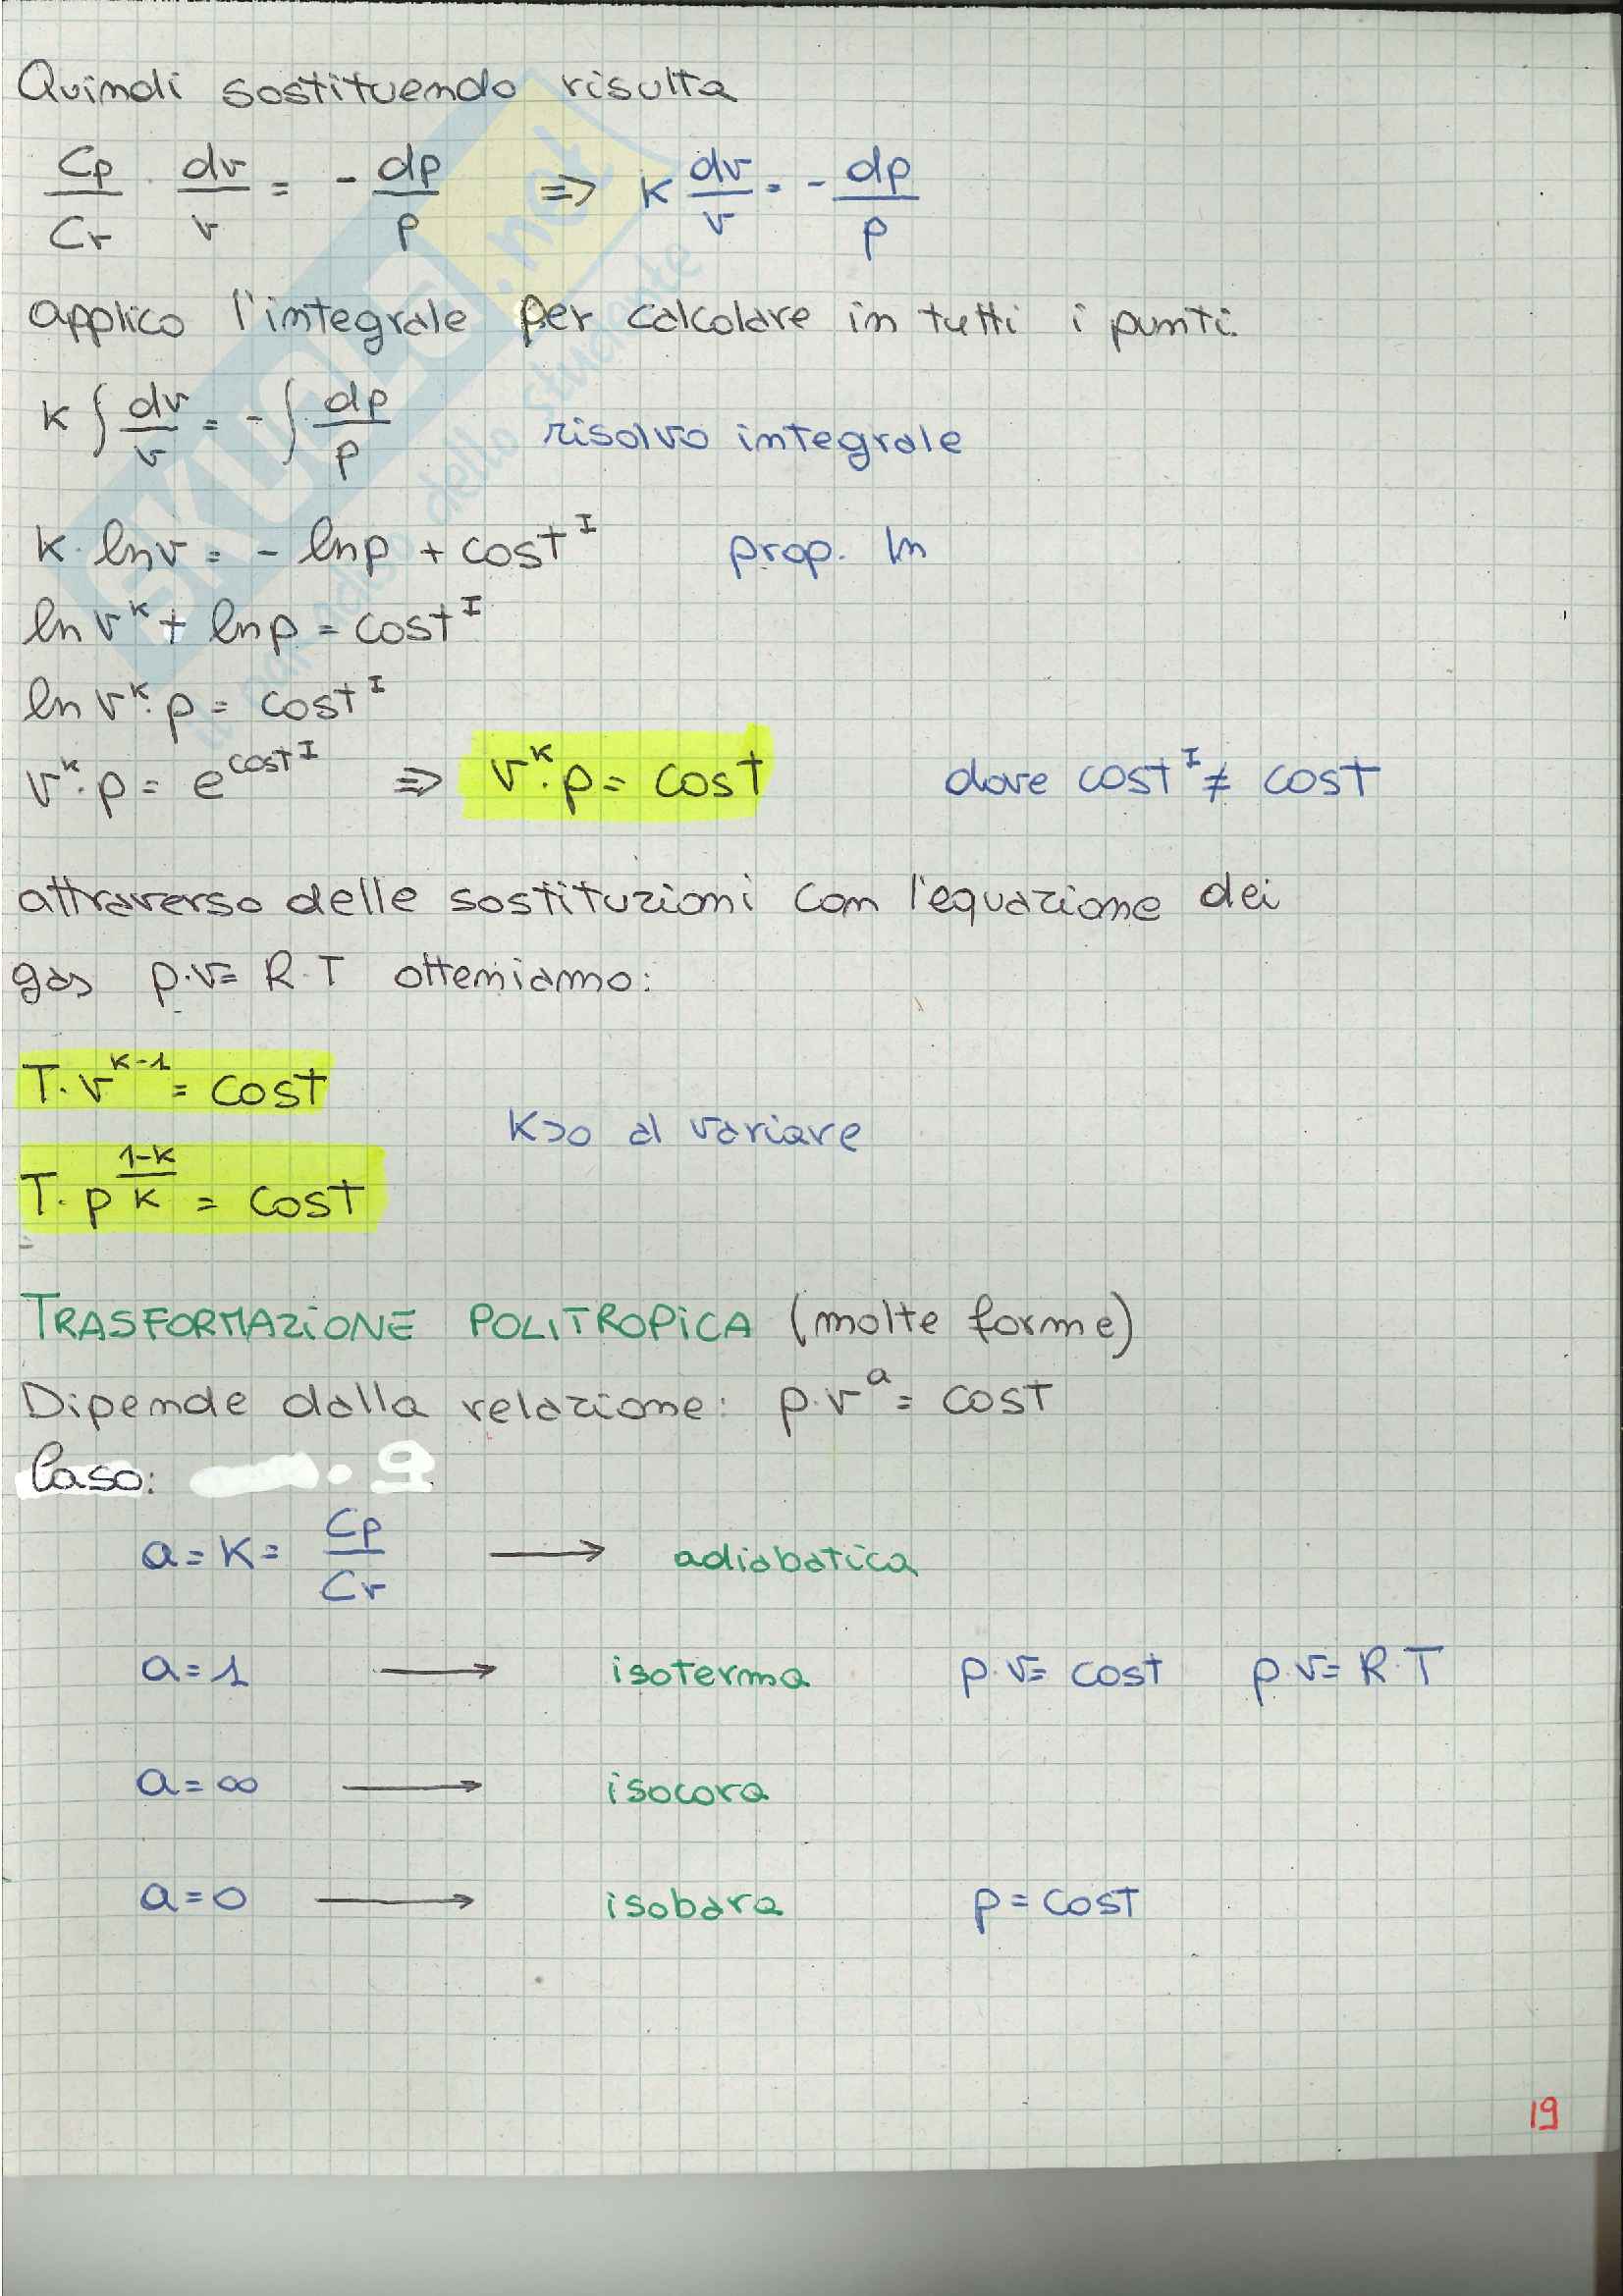 Quindi sostituendo risulta
Cp/Cv · dv/v = - dp/p => K dv/v = - dp/p
applico l'integrale per calcolare in tutti i punti.
K ∫ dv/v = - ∫ dp/p risolvo integrale
K · ln v = - ln p + cost^I prop. ln
ln v^K + ln p = cost^I
ln v^K · p = cost^I
v^K · p = e^cost^I => v^K · p = cost dove cost^I ≠ cost
attraverso delle sostituzioni con l'equazione dei
gas p·v = R·T otteniamo:
T · v^(K-1) = cost
K>0 al variare
T · p^((1-K)/K) = cost
TRASFORMAZIONE POLITROPICA (molte forme)
Dipende dalla relazione: p·v^a = cost
Caso:
a = K = Cp/Cv → adiabatica
a = 1 → isoterma p·v = cost p·v = R·T
a = ∞ → isocora
a = 0 → isobara p = cost
19
SKUOLA.net
il paradiso dello studente